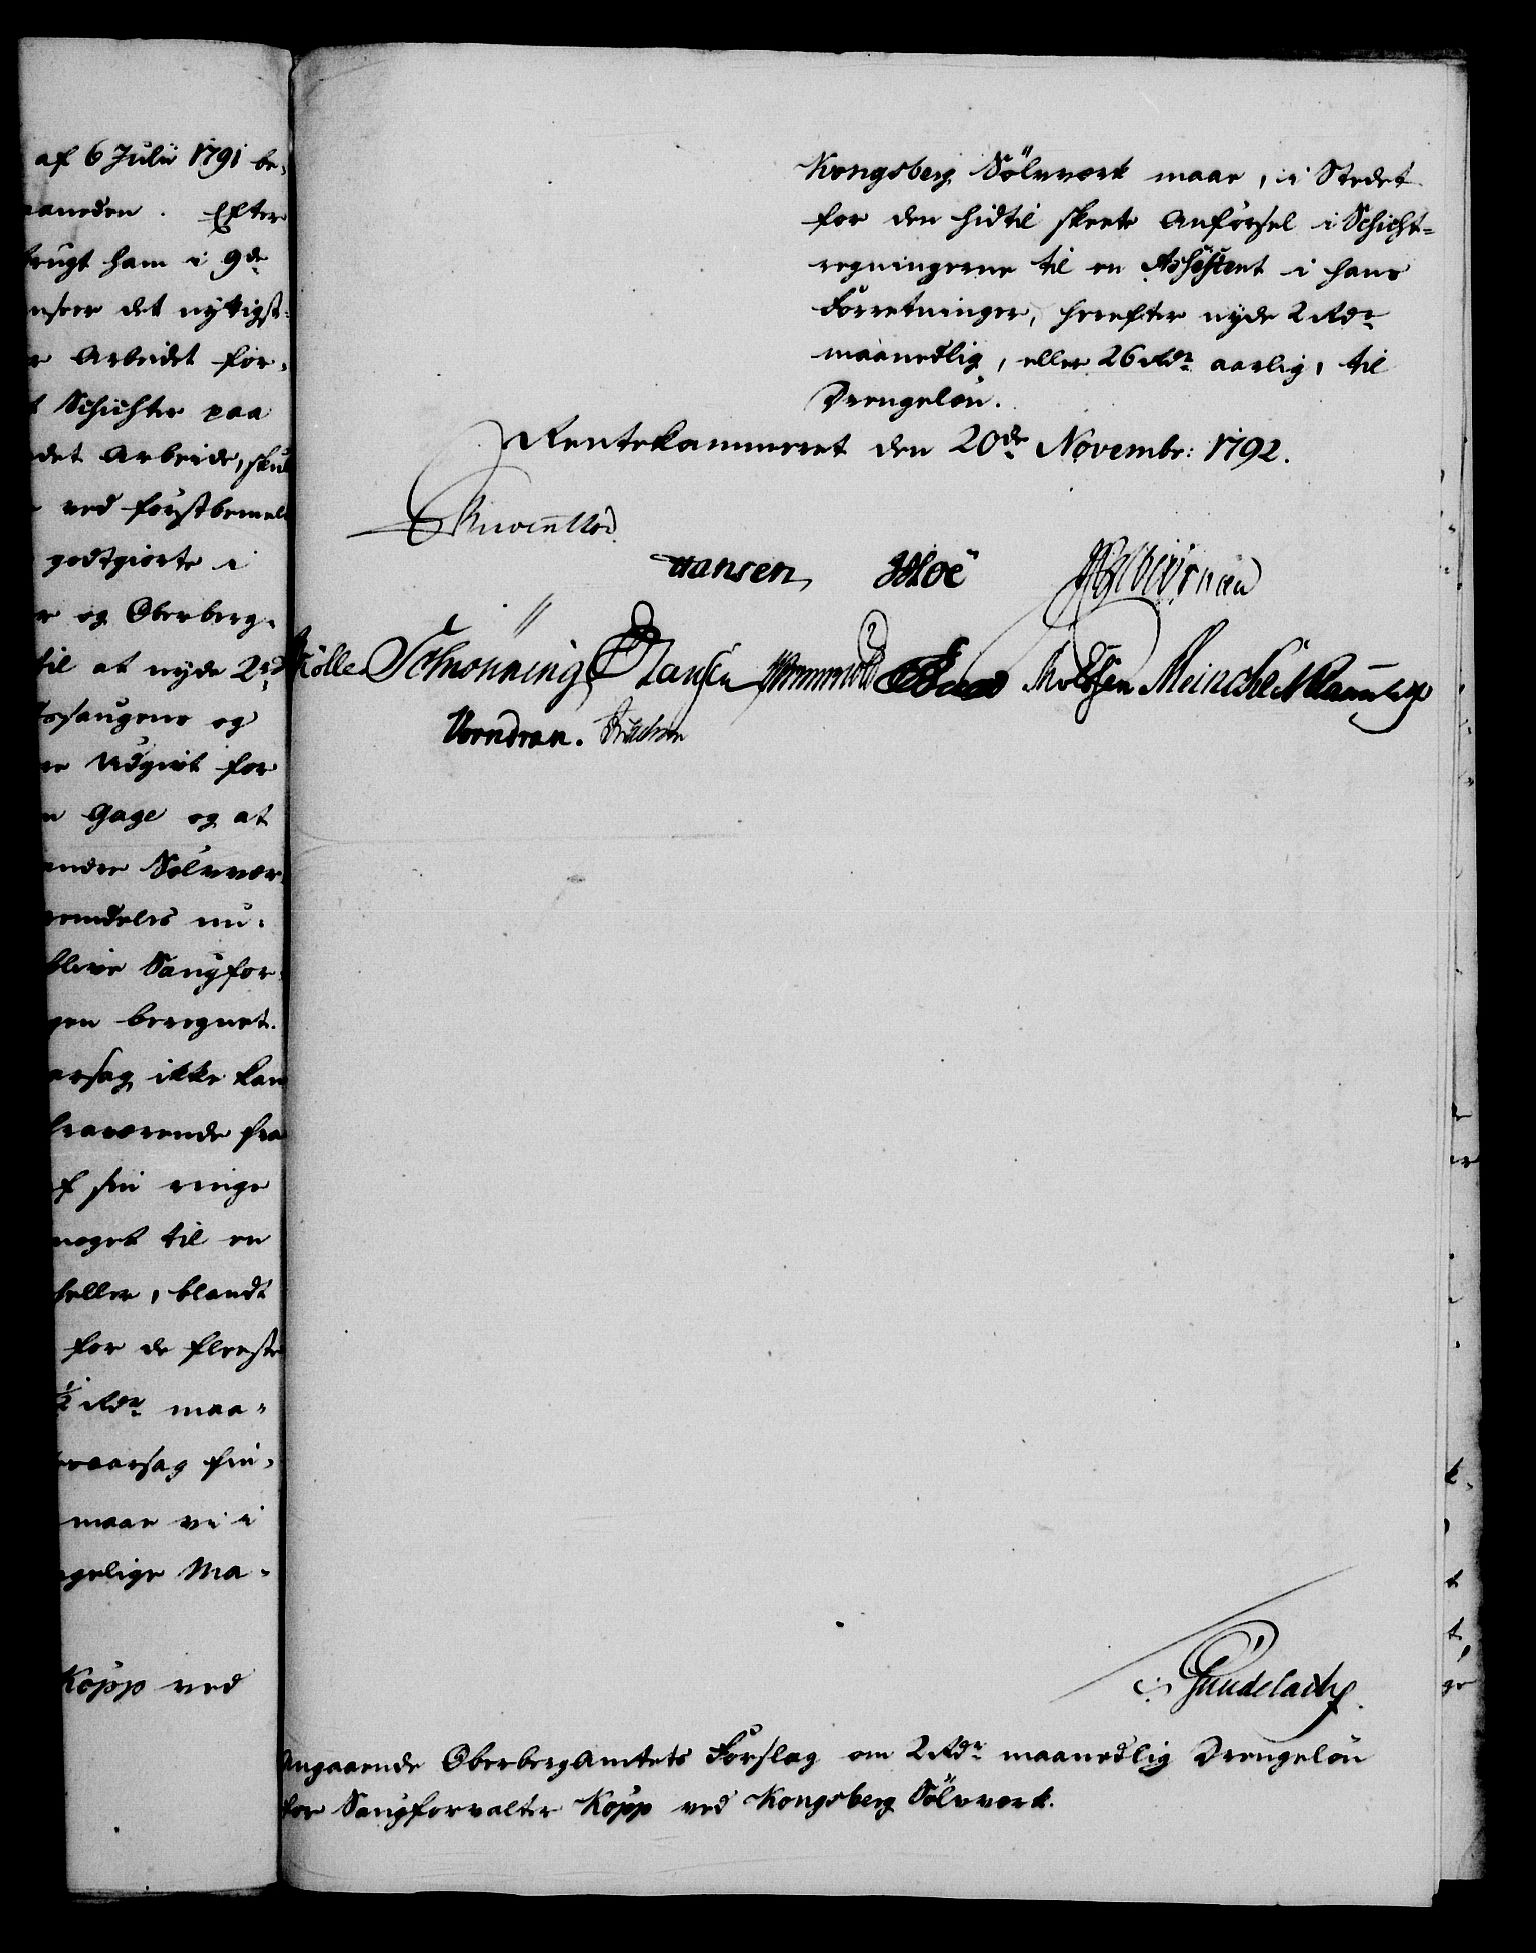 af 6 Julii 1791 be-
maaneden. Efter
brugt ham i 9de
anseer det nyttigst
Arbeidet for-
Schichter paa
det Arbeide, skul
ved forstbemel
godtgiorte i
og Oberberg-
til at nyde 2 rdr
saugene og
Udgivt for
Gage og at
andre Sølvvær
fremdeles nu-
blive Saugfor-
gen beregnet.
aarsag ikke kan
fraværende fra
af sin ringe
noget til en
heller, blandt
for de fleeste
½ Rdr maa-
aarsag fin-
maae vi i
gelige Ma-
Kopp ved
Kongsberg Sölvværk maae, i Stedet
for den hidtil skeete Anförsel i Schicht-
regningerne til en Assistent i hans
Forretninger, herefter nyde 2 Rdr
maanedlig, eller 26 Rdr aarlig, til
Drengelön.
Rentekammeret den 20de Novembr: 1792.
Hansen
Schrönning Hansen Meincke
Vorndran.
Gundelach.
Angaaende OberbergAmtets Forslag om 2 Rdr maanedlig Drengelön
for Saugforvalter Kopp ved Kongsberg Sölvværk.